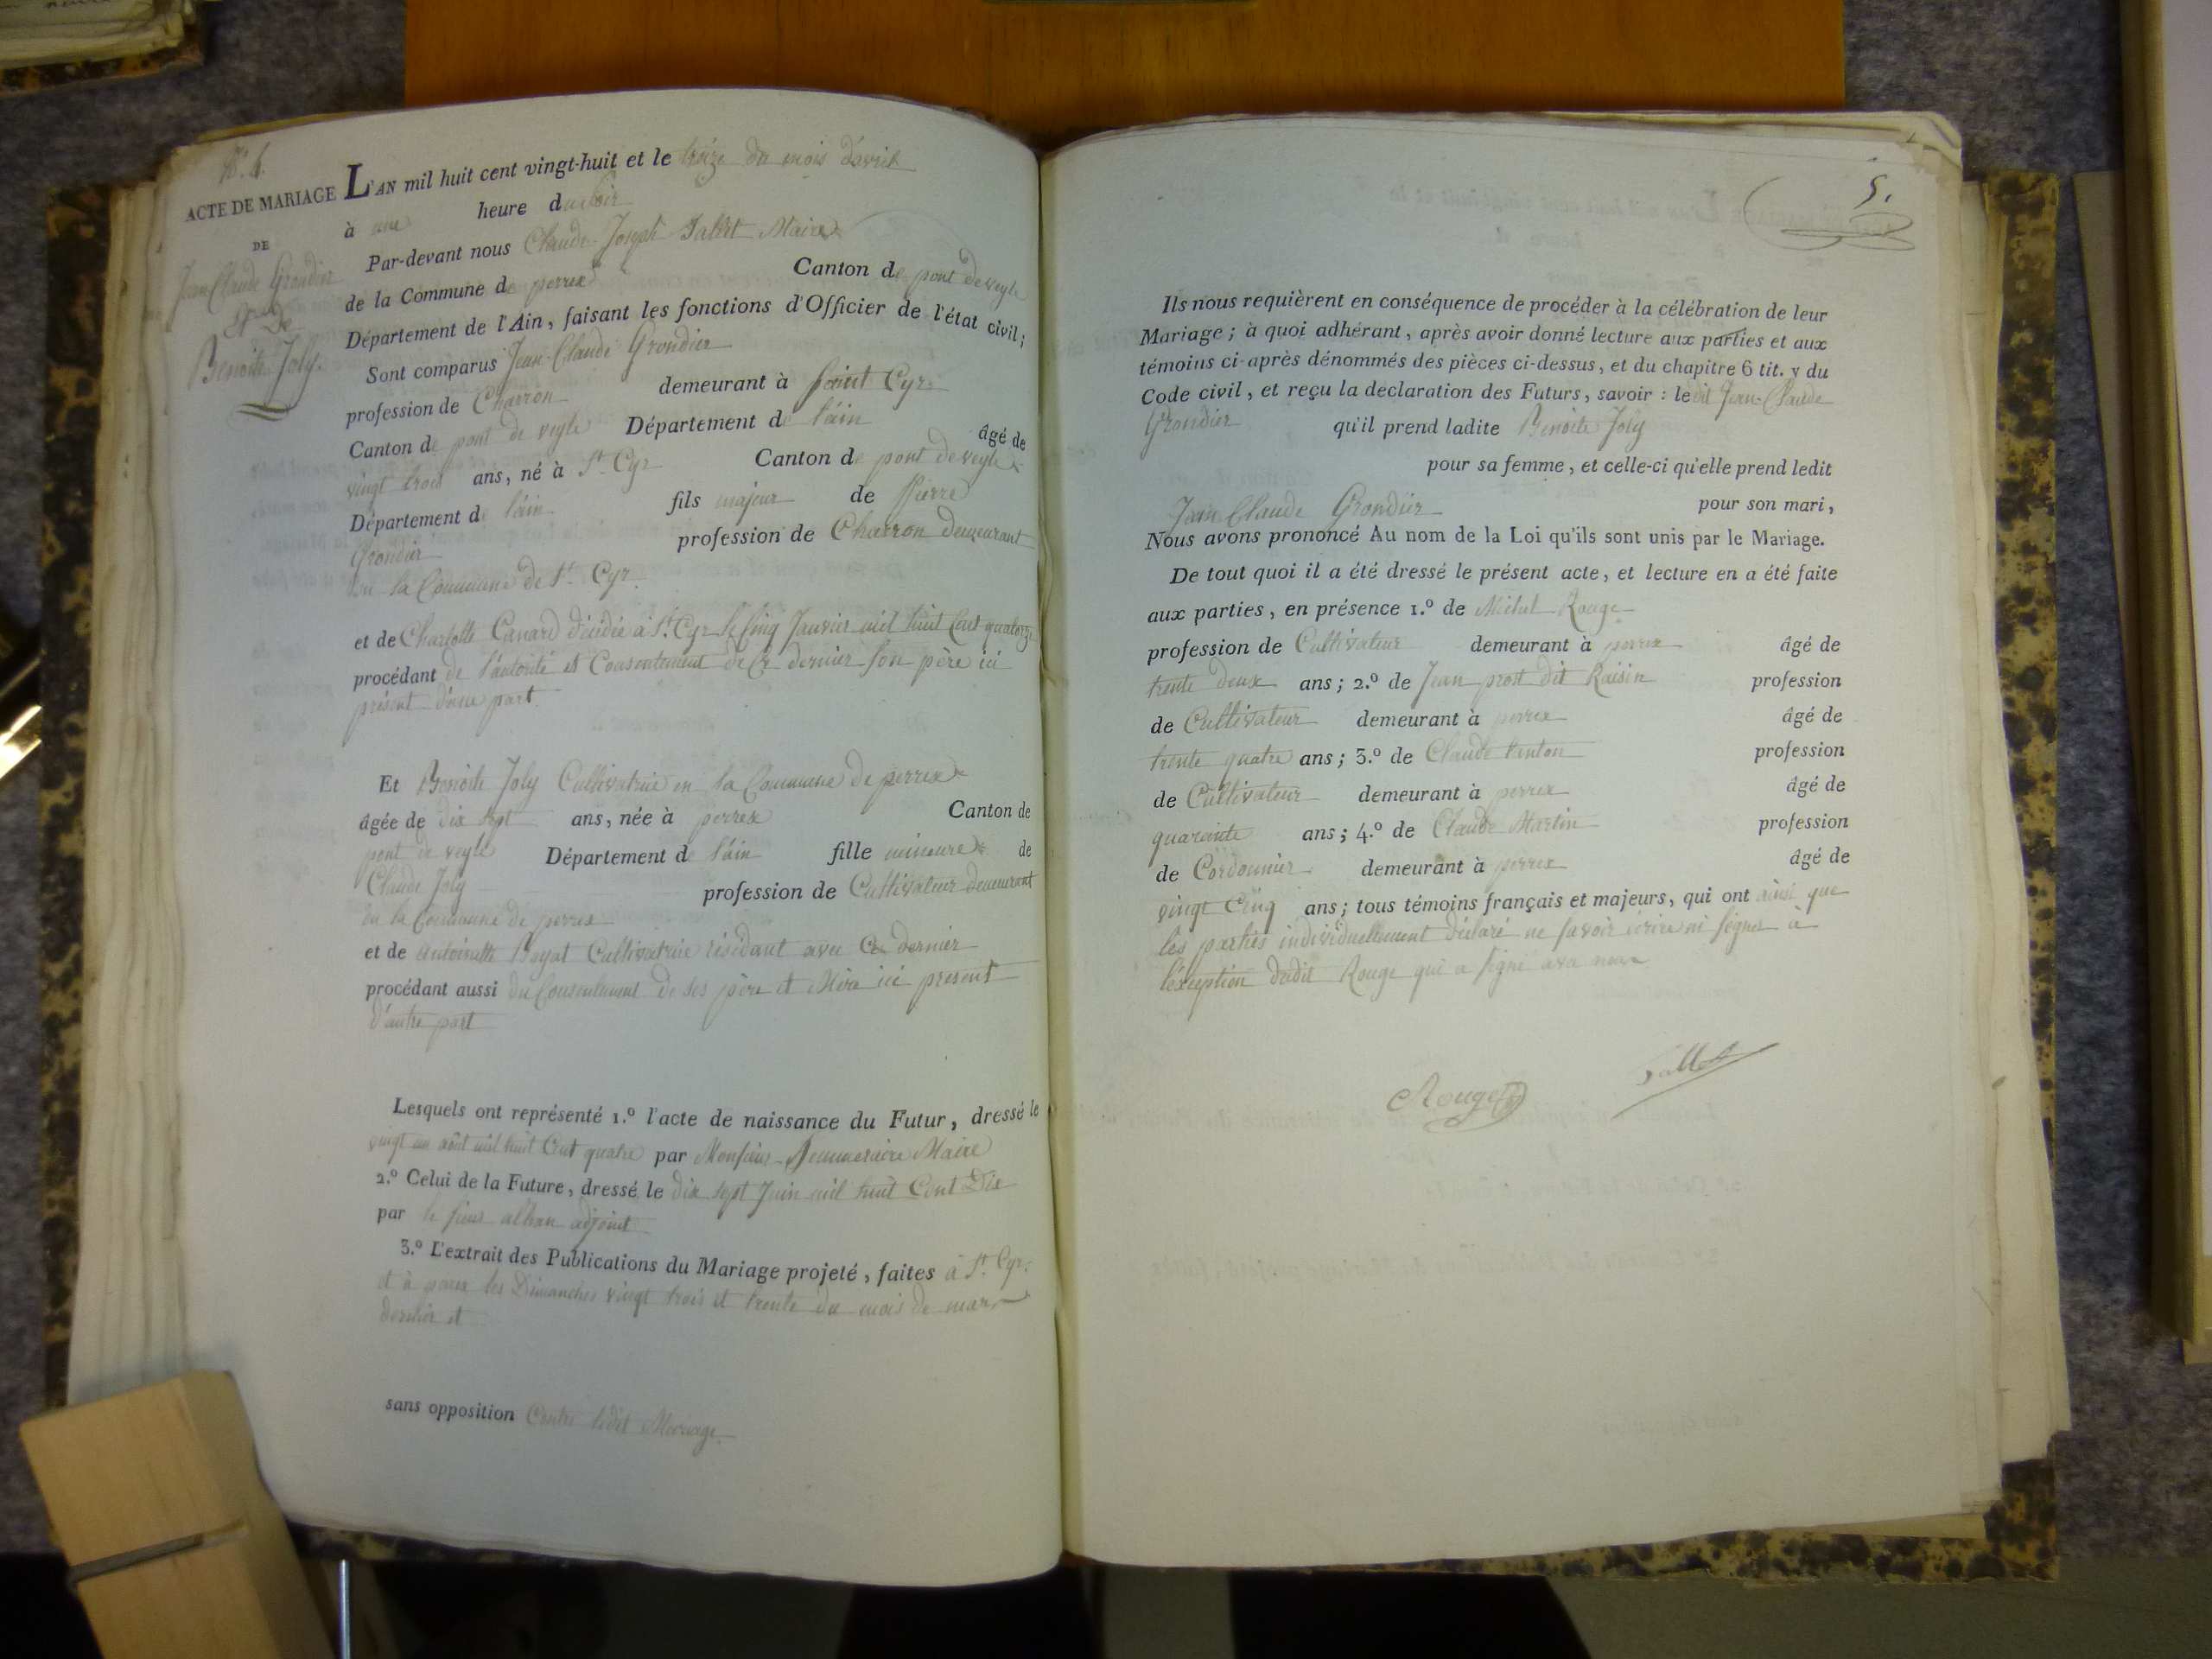 N.º
ACTE DE MARIAGE
DE
Jean Claude Grondier
Et De
Benoite Joly.
L'AN mil huit cent vingt-huit et le treize du mois d'avril
à une heure du soir
Par-devant nous Claude Joseph Maire
de la Commune de perrex Canton de pont de veyle
Département de l'Ain, faisant les fonctions d'Officier de l'état civil;
Sont comparus Jean-Claude Grondier
profession de Charron demeurant à Saint Cyr
Canton de pont de veyle Département de l'ain âgé de
vingt trois ans, né à St. Cyr Canton de pont de veyle
Département de l'ain fils majeur de Pierre
Grondier profession de Charron demeurant
en la Commune de St. Cyr.
et de Charlotte Canard décédée à St. Cyr le Cinq Janvier mil huit Cent quatorze
procédant de l'autorité et Consentement de Ce dernier son père ici
présent d'une part
Et Benoite Joly Cultivatrice en la Commune de perrex
âgée de dix sept ans, née à perrex Canton de
pont de veyle Département de l'ain fille mineure de
Claude Joly profession de Cultivateur demeurant
en la Commune de perrex
et de Antoinette Boyat Cultivatrice résidant avec Ce dernier
procédant aussi du Consentement de ses père et Mère ici présent
d'autre part
Lesquels ont représenté 1.º l'acte de naissance du Futur, dressé le
vingt un août mil huit Cent quatre par Monsieur Maire
2.º Celui de la Future, dressé le dix sept Juin mil huit Cent Dix
par le sieur alban adjoint
3.º L'extrait des Publications du Mariage projeté, faites à St. Cyr
et à perrex les Dimanches vingt trois et trente du mois de mars
dernier et
sans opposition Contre ledit Mariage.
5.
Ils nous requièrent en conséquence de procéder à la célébration de leur
Mariage; à quoi adhérant, après avoir donné lecture aux parties et aux
témoins ci-après dénommés des pièces ci-dessus, et du chapitre 6 tit. v du
Code civil, et reçu la declaration des Futurs, savoir: ledit Jean-Claude
Grondier qu'il prend ladite Benoite Joly
pour sa femme, et celle-ci qu'elle prend ledit
Jean Claude Grondier pour son mari,
Nous avons prononcé Au nom de la Loi qu'ils sont unis par le Mariage.
De tout quoi il a été dressé le présent acte, et lecture en a été faite
aux parties, en présence 1.º de Michel Rouge
profession de Cultivateur demeurant à perrex âgé de
trente deux ans; 2.º de Jean prost dit Raisin profession
de Cultivateur demeurant à perrex âgé de
trente quatre ans; 3.º de Claude profession
de Cultivateur demeurant à perrex âgé de
quarante ans; 4.º de Claude Martin profession
de Cordonnier demeurant à perrex âgé de
vingt Cinq ans; tous témoins français et majeurs, qui ont ainsi que
les parties individuellement déclaré ne savoir écrire ni signer à
l'éxception dudit Rouge qui a signé avec nous
Rouge